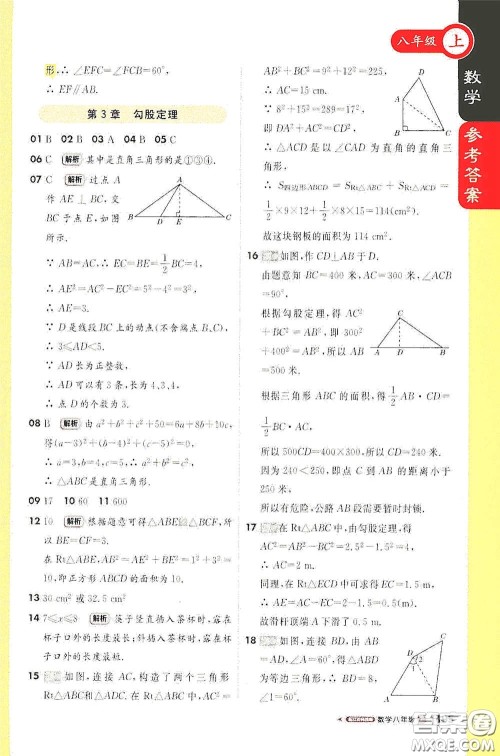 形,∴ ∠EFC=∠FCB=60°,
∴ EF∥AB.
第3章 勾股定理
01 B 02 B 03 A 04 B 05 C
06 C 解析 其中是直角三角形的是①③④.
07 C 解析 过点 A
作 AE⊥BC,交
BC于点E,如图
所示.
A
B
D
E
C
∵ AB=AC=5,BC=8,
∴ BE=EC=1/2BC=4,
∴ AE²=AC²-EC²=5²-4²=3²,
∴ AE=3.
∵ D是线段BC上的动点(不含端点B,C),
∴ 3≤AD<5.
∵ AD长为正整数,
∴ AD可以有3条,长为4,3,4,
∴ 点D的个数共有3个.
08 B 解析 由 a²+b²+c²+50=6a+8b+10c,
得(a-3)²+(b-4)²+(c-5)²=0,
∴ a=3,b=4,c=5.
∵ 3²+4²=5²,
∴ △ABC是直角三角形.
09 17 10 60 11 600
12 10 解析 根据题意可得△ABE≌△BCF,所
以BE=CF=3.
在Rt△ABE中,AB²=AE²+BE²=1²+3²=
10,即正方形ABCD的面积为10.
13 30 cm²或32.5 cm²
14 7≤x≤8 解析 筷子竖直插入茶杯时,露在
杯子口外的长度最长;斜插入茶杯时,露在杯
子口外的长度最短.
15 如图,连接AC,构造两个三角形
Rt△ABC和△ADC,在Rt△ABC中,AC²=
AB²+BC²=9²+12²=225,
∴ AC=15.
∵ 8²+15²=289=17²,
∴ △ADC是以∠DAC为直角的直角三
角形,
D
A
B
C
∴ S四边形ABCD=S Rt△ABC+S Rt△ADC=
1/2×9×12+1/2×8×15=114(cm²).
故这块钢板的面积为114 cm².
16 如图,作CD⊥AB于D.
由题意知BC=400米,AC=300米,∠ACB
=90°.
根据勾股定理,得AC²+
BC²=AB²,即300²+
400²=AB²,所以AB
=500米.
C
A
D
B
根据三角形ABC的面积的,得1/2AB·CD=
1/2BC·AC,
所以500CD=400×300,所以CD=240米.
因为240<250,即点C到AB的距离小于
250米,
所以有危险,公路AB段需要暂时封锁.
17 在Rt△ABC中,由勾股定理得
AC²=AB²-BC²=2.5²-1.5²=4,
∴ AC=2米.
同理,在Rt△ECD中,EC=1.5米,
∴ AE=AC-EC=2-1.5=0.5(米).
故滑杆顶端A下滑了0.5 m.
18 如图,连接BD,由
AB=AD,∠A=60°,知△ABD
为等边三角形,∴ BD=AD=8,
∠1=60°.
A
D
1
2
B
C
八年级 上
数学
参考答案
数学八年级
答案圈
MXQE.COM